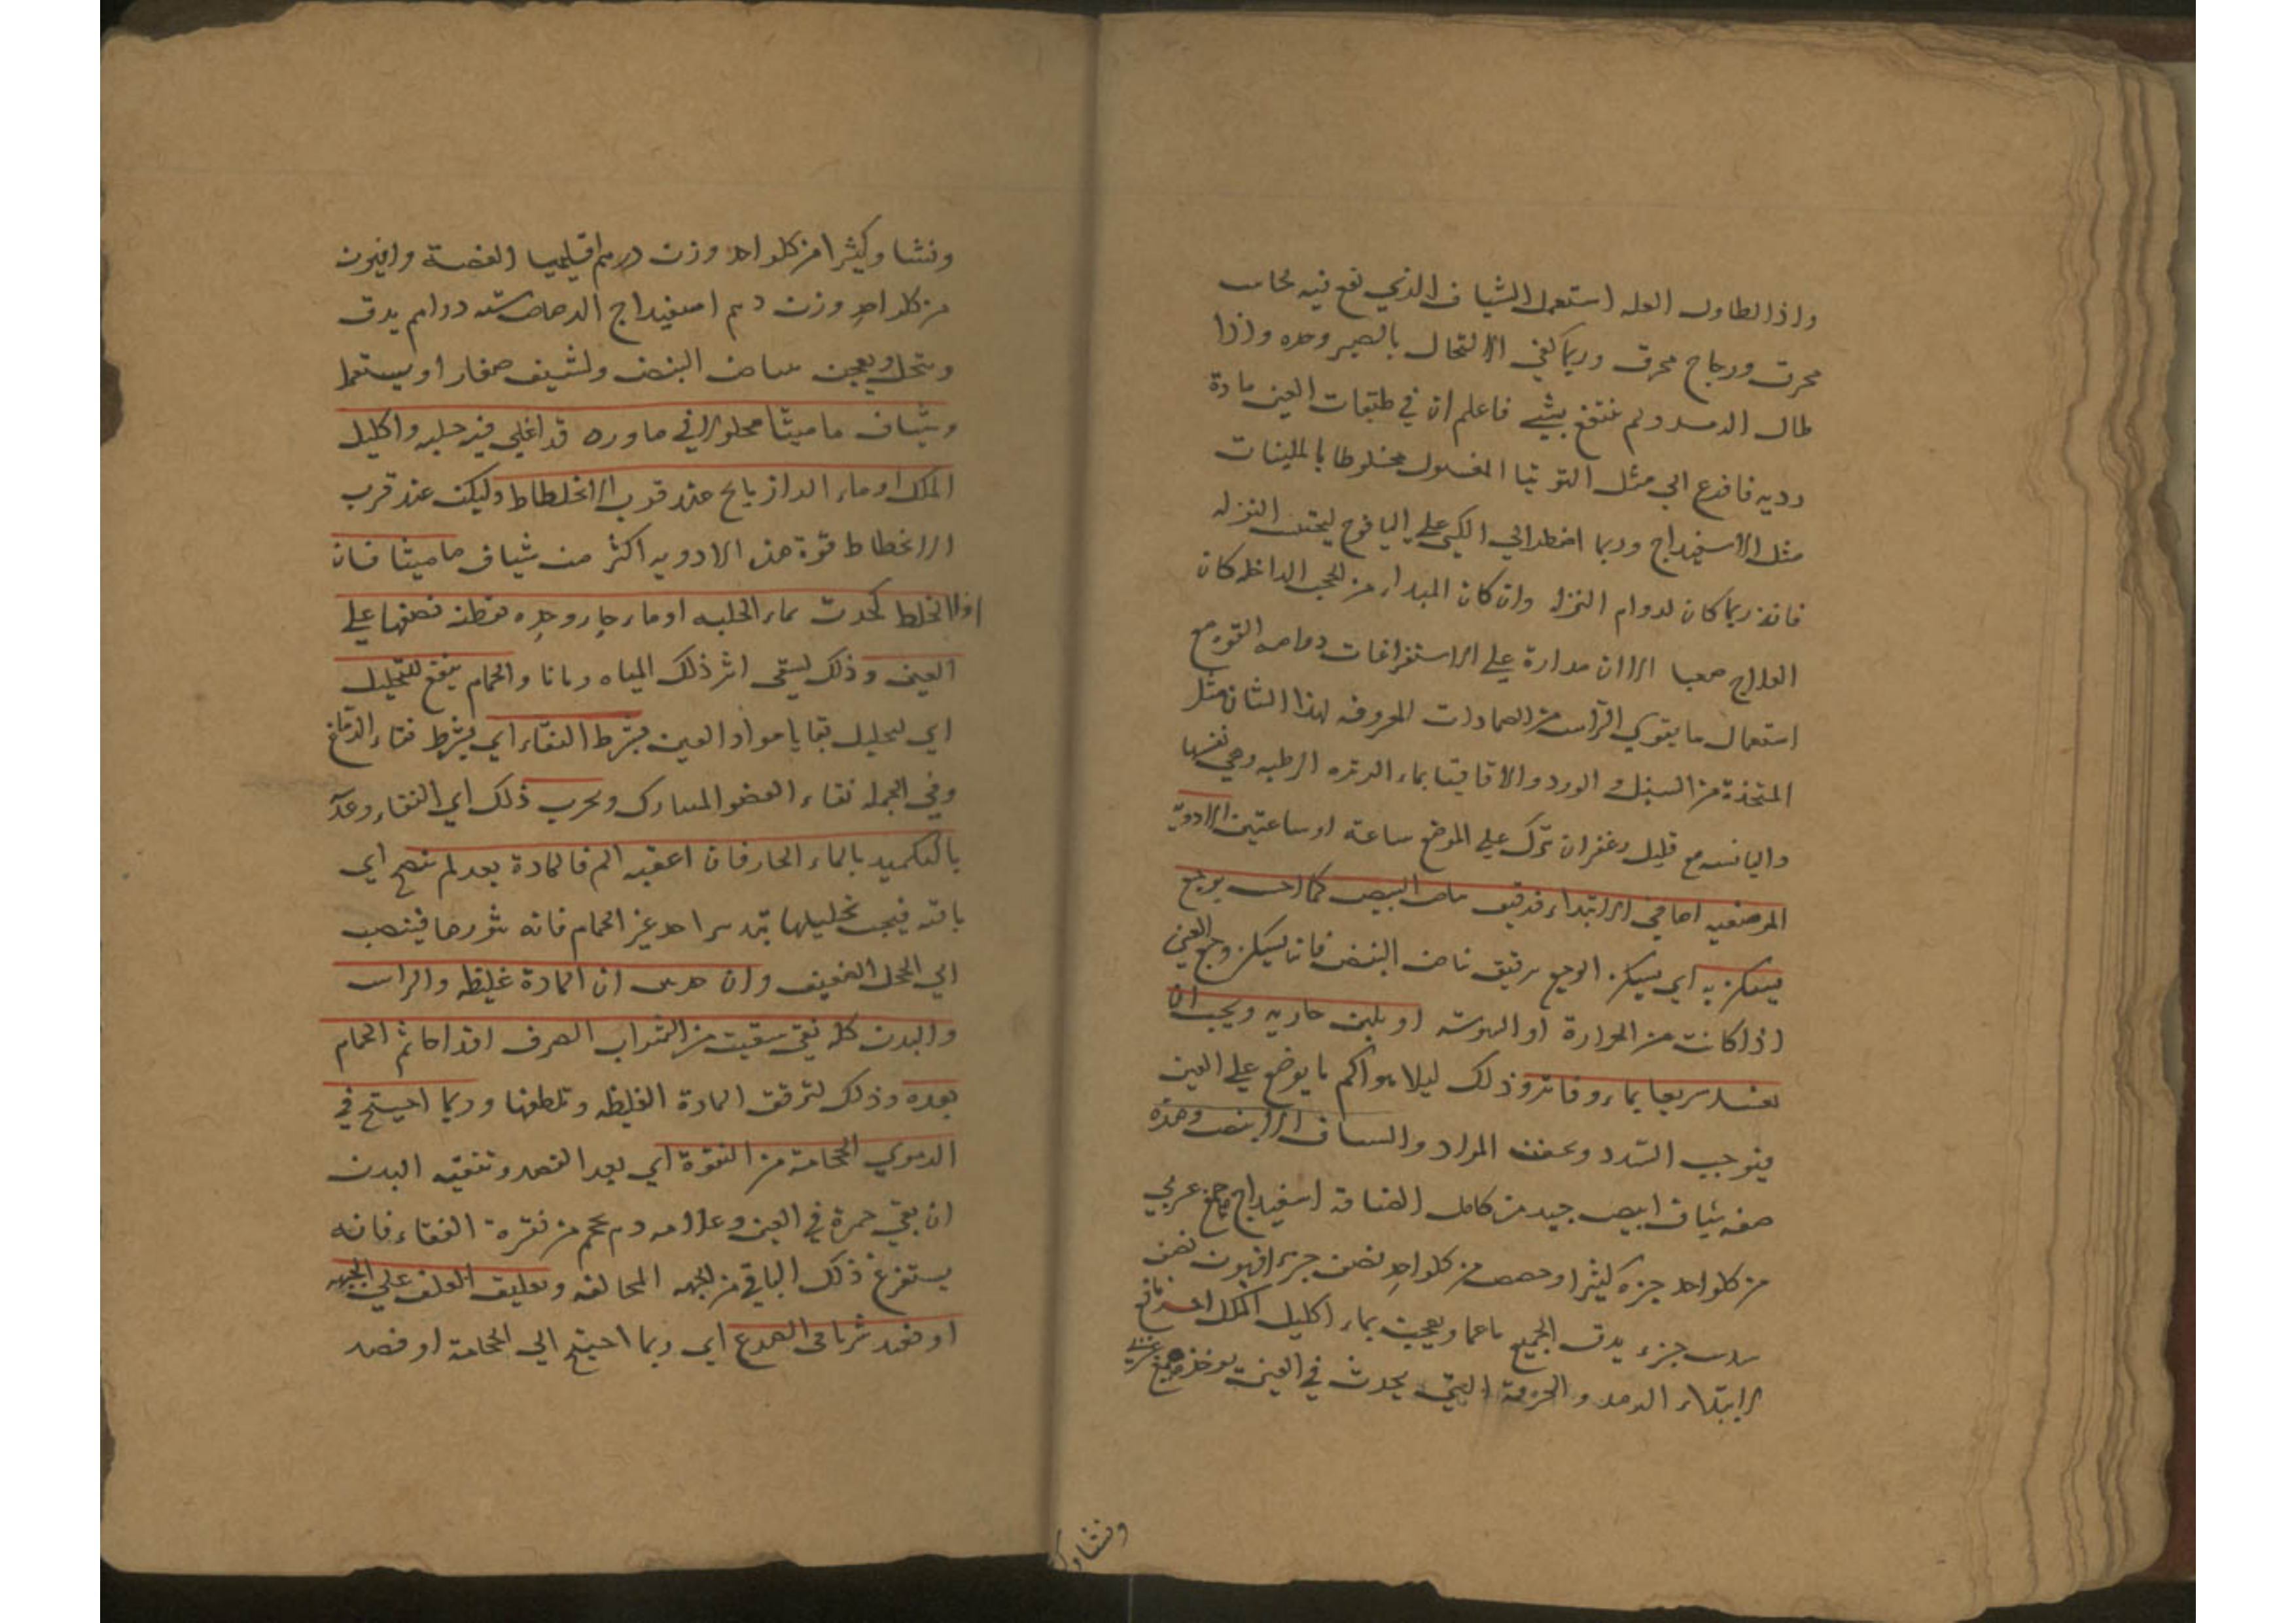 واذا تطاول العله استعمل الشياف الذي يقع فيه نحاس
محرق وزجاج محرق وربما كفى الاكتحال بالصبر وحده واذا
طال الرمد ولم ينتفع بشيء فاعلم ان في طبقات العين مادة
رديه فافزع الي مثل التوتيا المغسول مخلوطا بالملينات
مثل الاسفيداج وربما اضطر الي الكي علي اليافوخ ليحتبس النزله
فانه ربما كان لدوام النزله وان كان المبداء من الحجب الداخله كان
العلاج صعبا الا ان مداره علي الاستفراغات مع
استعمال ما يقوي الراس من الضمادات المعروفه لهذا الشان مثل
المتخذة من السنبل والورد والاقاقيا بماء الكزبره الرطبه وهي نفسها
واليابسه مع قليل زعفران يترك علي الموضع ساعة او ساعتين الادوية
الموضعيه اما في الابتداء فرقيق بياض البيض
يسكن به اي يسكن الوجع برقيق بياض البيض فانه يسكن وجع العين
اذا كانت من الحرارة او اليبوسة او بلبن جاريه ويجب ان
يغسل سريعا بماء فاتر وذلك ليلا يتراكم ما يوضع علي العين
فيوجب السدد ويعفن المواد والشياف الابيض وهذه
صفه شياف ابيض جيد من كامل الصناعة اسفيداج وصمغ عربي
من كل واحد جزء كثيرا من كل واحد نصف جزء افيون نصف
سدس جزء يدق الجميع ناعما ويعجن بماء اكليل الملك اخر نافع
لابتداء الرمد والحرقة التي يحدث في العين يوخذ صمغ عربي
ونشا وك
ونشا وكثيرا من كل واحد وزن درهم اقليميا الفضة وافيون
من كل واحد وزن درهم اسفيداج الرصاص سته دراهم يدق
وينخل ويعجن ببياض البيض ويشيف صغار او يستعمل
وشياف ماميثا محلولا في ماورد قد اغلي فيه حلبه واكليل
الملك او ماء الرازيانج عند قرب الانحطاط وليكن عند قرب
الانحطاط قوة هذه الادويه اكثر من شياف ماميثا فان
العين وذلك ليبقى اثر ذلك المياه زمانا والحمام ينفع للتحليل
اي لتحليل بقايا مواد العين بشرط النقاء اي بشرط نقاء الدماغ
وفي الجمله نقاء العضو المشارك ويجرب ذلك اي النقاء وعدمه
بالتكميد بالماء الحار فان اعقبه الم فالمادة بعد لم تنضج اي
باقيه فيجب تحليلها بتدبير اخر غير الحمام فانه يثورها فينصب
الي المحل الضعيف وان حدس ان المادة غليظه والراس
والبدن كله نقي سقيت من الشراب الصرف اقداحا ثم الحمام
بعده وذلك لترقق المادة الغليظه وتلطفها وربما احتيج في
الدموي الحجامة من النقرة اي بعد الفصد وتنقيه البدن
ان بقي حمرة في العين وعلامه دم يحجم من نقرة القفاء فانه
يستفرغ ذلك الباقي من الجهه المخالفه وتعليق العلق علي الجبهه
او فصد شرياني الصدغ اي ربما احتيج الي الحجامة او فصد